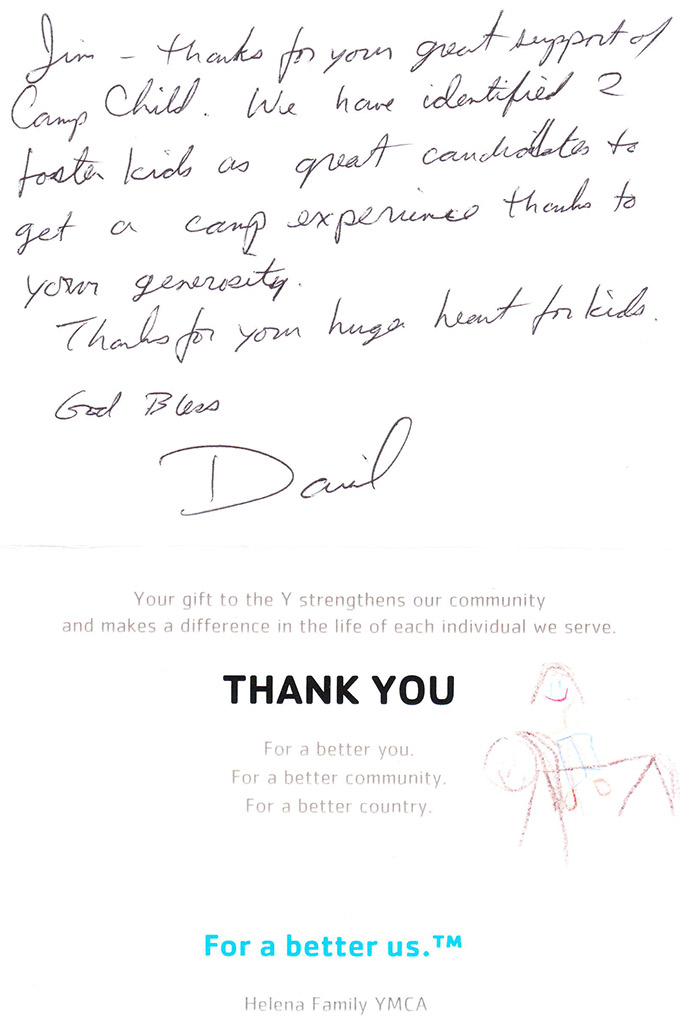 Jim – thanks for your great support of
Camp Child. We have identified 2
foster kids as great candidates to
get a camp experience thanks to
your generosity.
Thanks for your huge heart for kids.
God Bless
David
Your gift to the Y strengthens our community
and makes a difference in the life of each individual we serve.
THANK YOU
For a better you.
For a better community.
For a better country.
For a better us.™
Helena Family YMCA